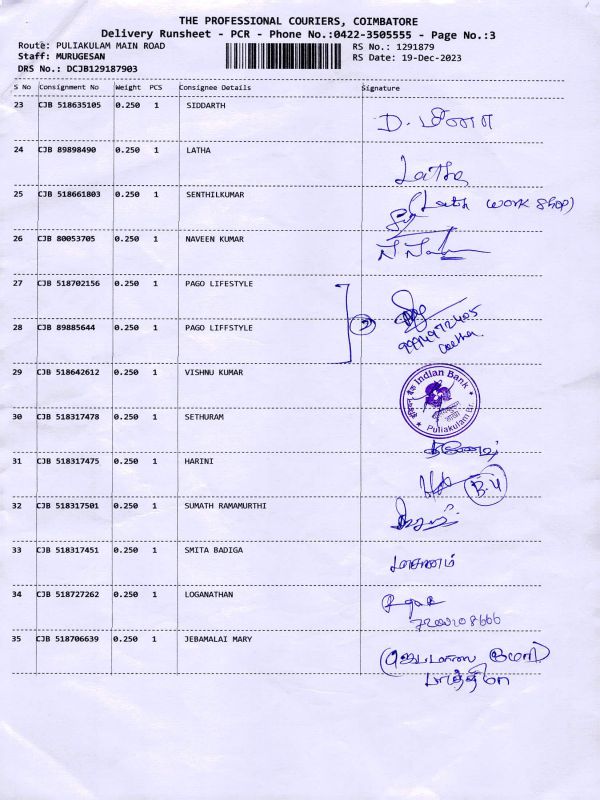 THE PROFESSIONAL COURIERS, COIMBATORE
Delivery Runsheet - PCR - Phone No.:0422-3505555 - Page No.:3
Route: PULIAKULAM MAIN ROAD RS No.: 1291879
Staff: MURUGESAN RS Date: 19-Dec-2023
DRS No.: DCJB129187903
S No Consignment No Weight PCS Consignee Details Signature
23 CJB 518635105 0.250 1 SIDDARTH
D. மீனா
24 CJB 89898490 0.250 1 LATHA
Latha
25 CJB 518661803 0.250 1 SENTHILKUMAR
(Lath work shop)
26 CJB 80053705 0.250 1 NAVEEN KUMAR
27 CJB 518702156 0.250 1 PAGO LIFESTYLE
28 CJB 89885644 0.250 1 PAGO LIFFSTYLE
2
29 CJB 518642612 0.250 1 VISHNU KUMAR
Indian Bank
Puliakulam Br.
30 CJB 518317478 0.250 1 SETHURAM
31 CJB 518317475 0.250 1 HARINI
B.4
32 CJB 518317501 0.250 1 SUMATH RAMAMURTHI
33 CJB 518317451 0.250 1 SMITA BADIGA
மாசாணம்
34 CJB 518727262 0.250 1 LOGANATHAN
35 CJB 518706639 0.250 1 JEBAMALAI MARY
(ஜெபமாலை மேரி)
பாத்திமா